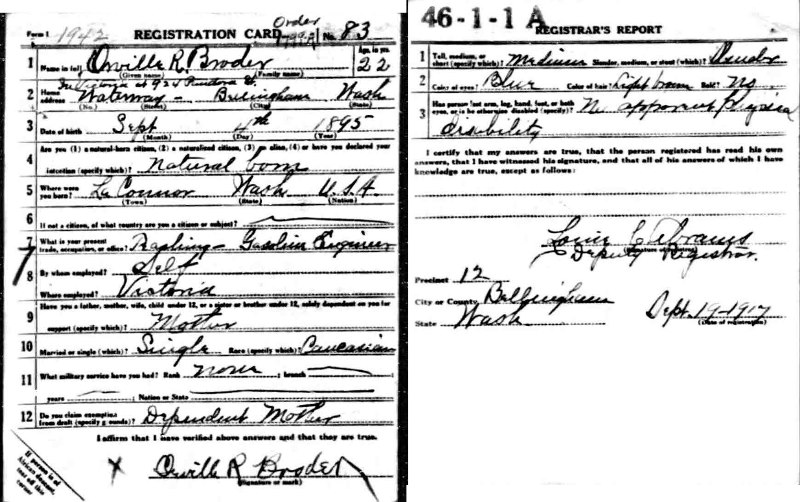 Form 1 1942 REGISTRATION CARD Order No. 83
1 Name in full Orville R. Broder Age, in yrs. 22
(Given name) (Family name)
In Victoria at 924 Pandora St
2 Home address Waterway - Bellingham Wash
(No.) (Street) (City) (State)
3 Date of birth Sept 4th 1895
(Month) (Day) (Year)
4 Are you (1) a natural-born citizen, (2) a naturalized citizen, (3) an alien, (4) or have you declared your
intention (specify which)? Natural born
5 Where were you born? La Connor Wash U.S.A.
(Town) (State) (Nation)
6 If not a citizen, of what country are you a citizen or subject?
7 What is your present trade, occupation, or office? Gasoline Engineer
8 By whom employed? Self
Where employed? Victoria
9 Have you a father, mother, wife, child under 12, or a sister or brother under 12, solely dependent on you for
support (specify which)? Mother
10 Married or single (which)? Single Race (specify which)? Caucasian
11 What military service have you had? Rank none ; branch
years ; Nation or State
12 Do you claim exemption from draft (specify grounds)? Dependent Mother
I affirm that I have verified above answers and that they are true.
X Orville R Broder
(Signature or mark)
If person is of
African descent,
tear off this
corner
46-1-1 A
REGISTRAR'S REPORT
1 Tall, medium, or short (specify which)? Medium Slender, medium, or stout (which)? Slender
2 Color of eyes? Blue Color of hair? Light brown Bald? No
3 Has person lost arm, leg, hand, foot, or both eyes, or is he otherwise disabled (specify)? No apparent physical
disability
I certify that my answers are true, that the person registered has read his own
answers, that I have witnessed his signature, and that all of his answers of which I have
knowledge are true, except as follows:
Deputy Registrar.
Precinct 12
City or County Bellingham
State Wash Sept. 19-1917
(Date of registration)